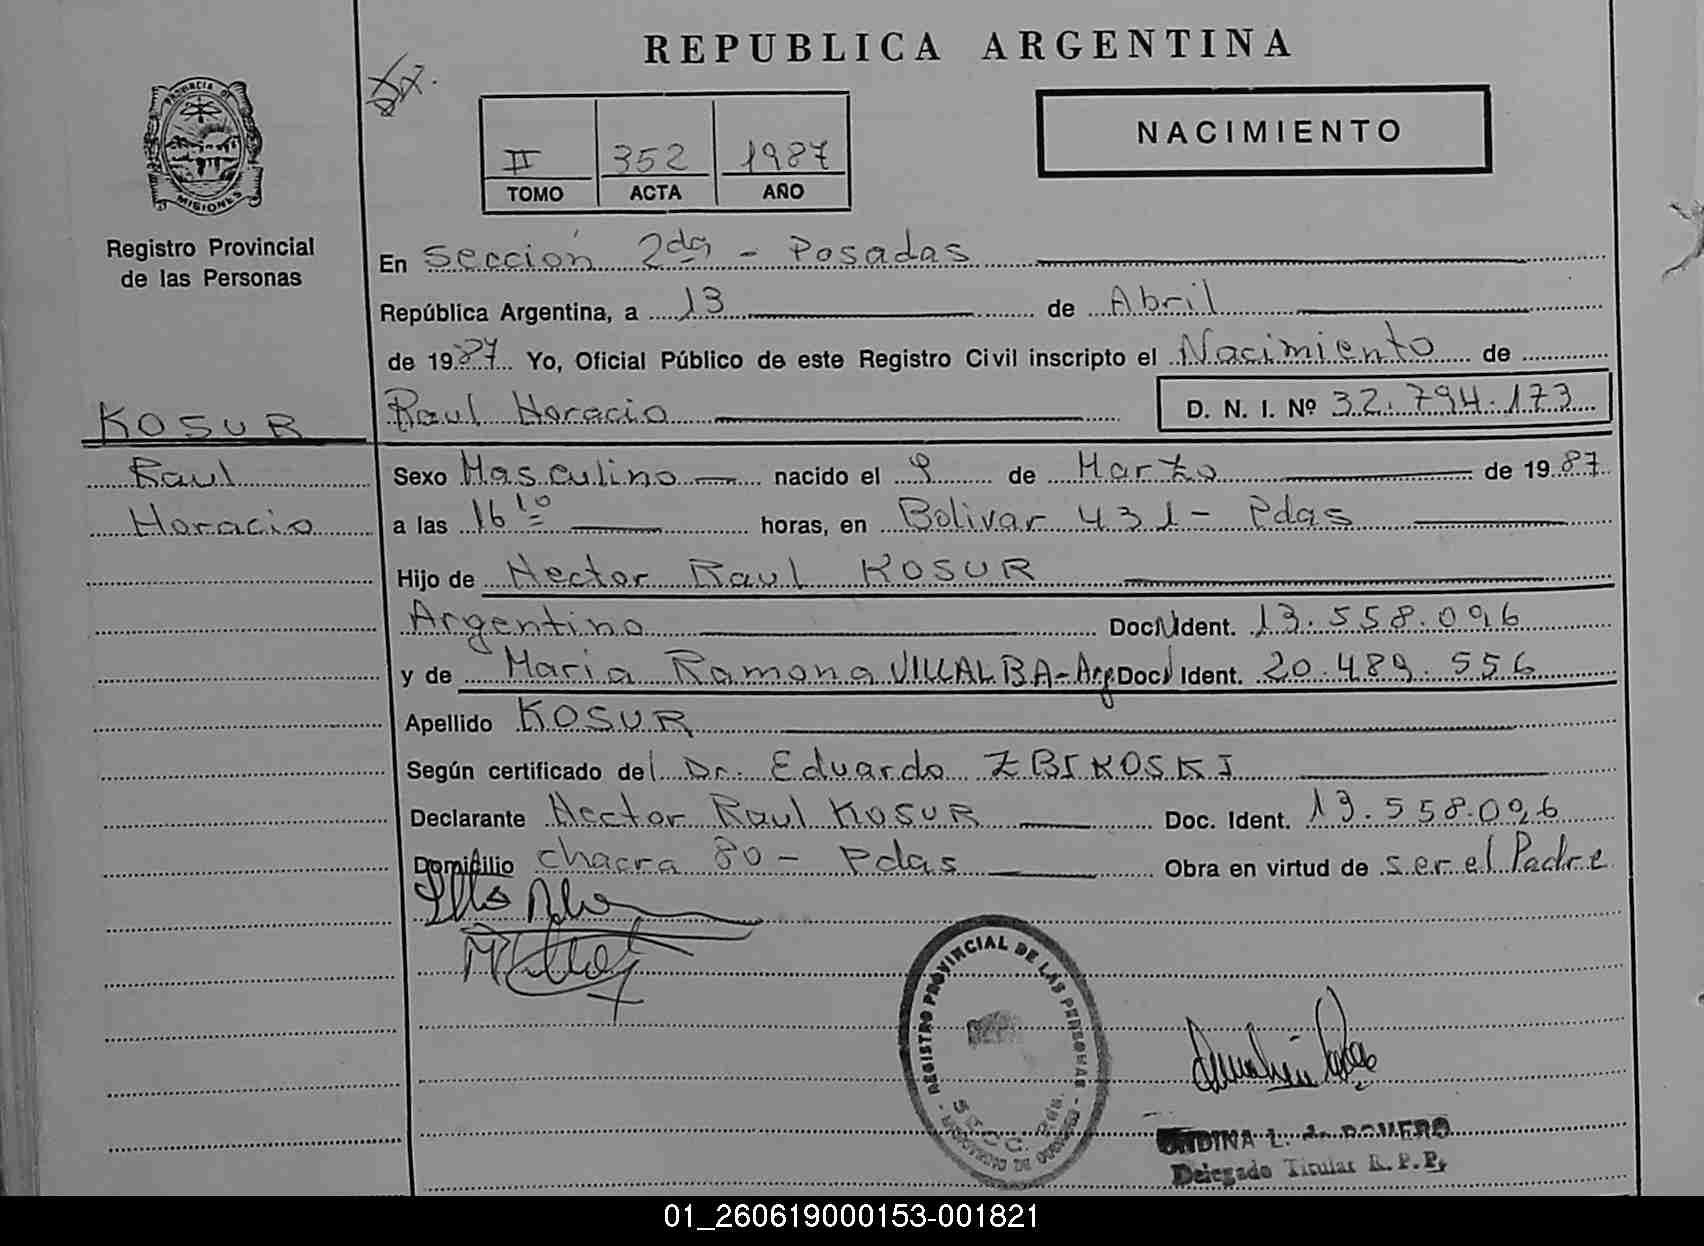 REPUBLICA ARGENTINA
PROVINCIA DE
MISIONES
II 352 1987
TOMO ACTA AÑO
NACIMIENTO
Registro Provincial
de las Personas
En Sección 2da - Posadas
República Argentina, a 13 de Abril
de 1987 Yo, Oficial Público de este Registro Civil inscripto el Nacimiento de
Raul Horacio D. N. I. Nº 32.794.173
KOSUR
Raul
Horacio
Sexo Masculino nacido el 9 de Marzo de 1987
a las 16 10 horas, en Bolivar 431 - Pdas
Hijo de Hector Raul KOSUR
Argentino Doc. Ident. 13.558.096
y de Maria Ramona VILLALBA - Arg Doc. Ident. 20.489.556
Apellido KOSUR
Según certificado del Dr. Eduardo ZBIKOSKI
Declarante Hector Raul KOSUR Doc. Ident. 13.558.096
Domicilio chacra 80 - Pdas Obra en virtud de ser el Padre
REGISTRO PROVINCIAL DE LAS PERSONAS
L. de ROMERO
Delegado Titular R.P.P.
01_260619000153-001821